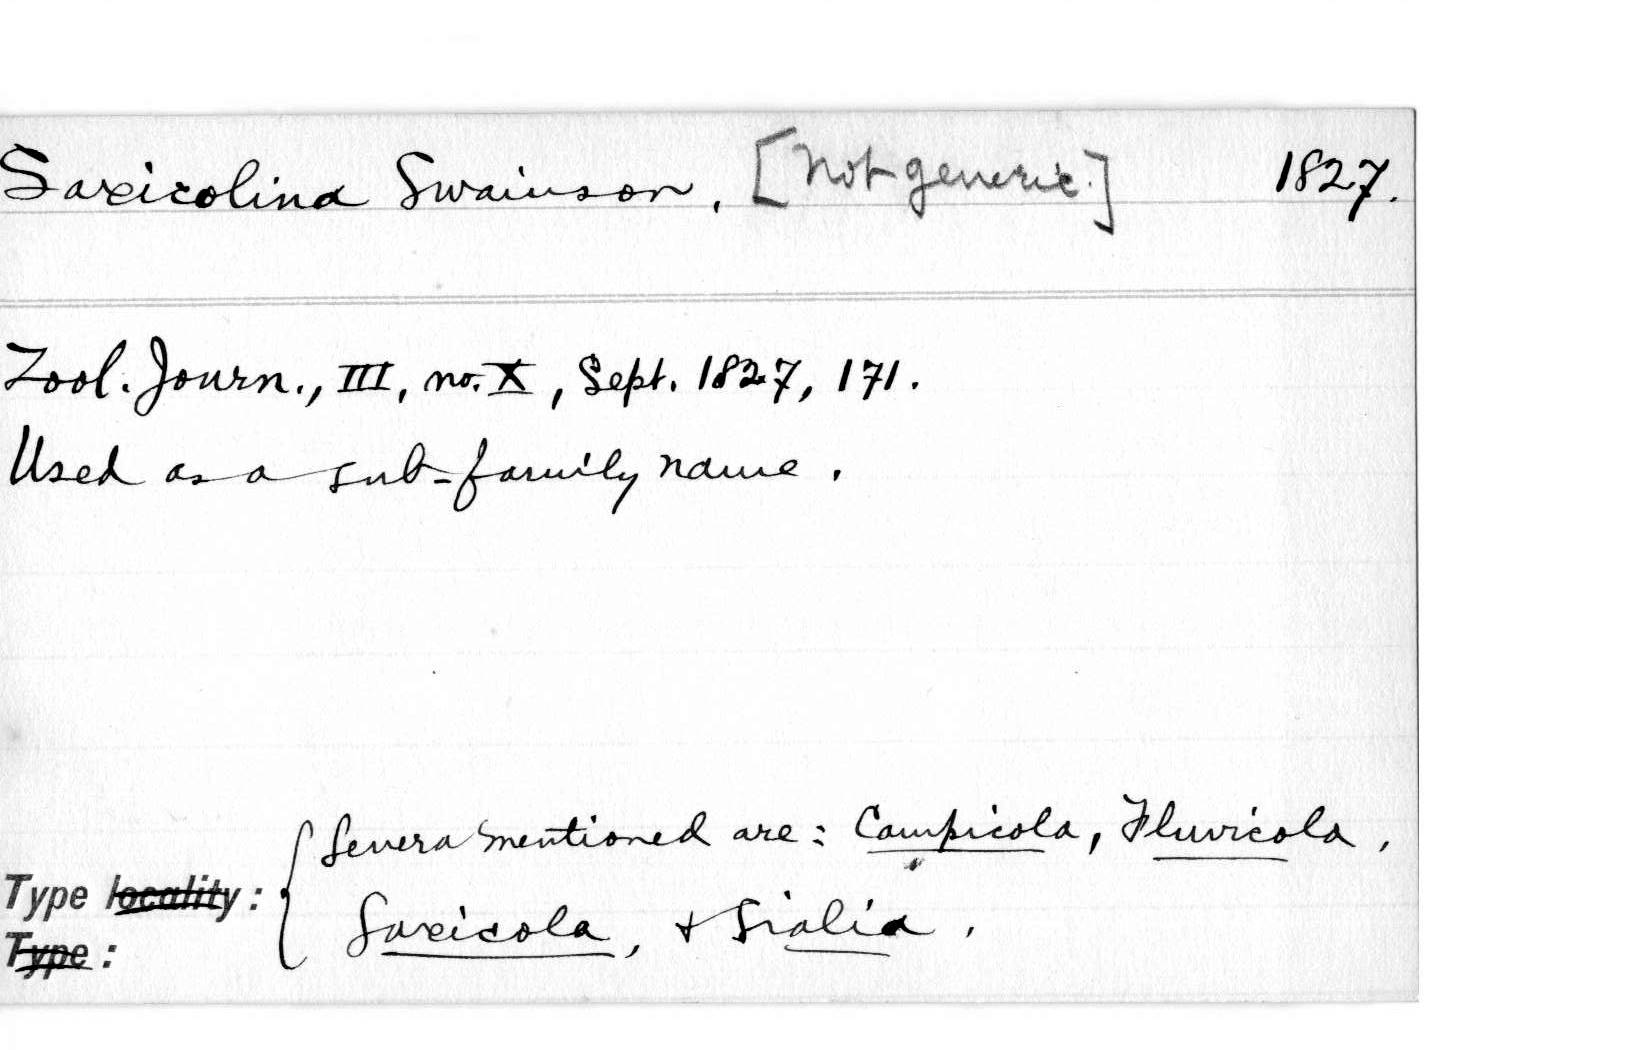 Saxicolina Swainson, [Not generic.] 1827.
Zool. Journ., III, no. X, Sept. 1827, 171.
Used as a sub-family name.
Genera mentioned are: Campicola, Fluvicola,
Type locality:
Saxicola, & Sialia.
Type: